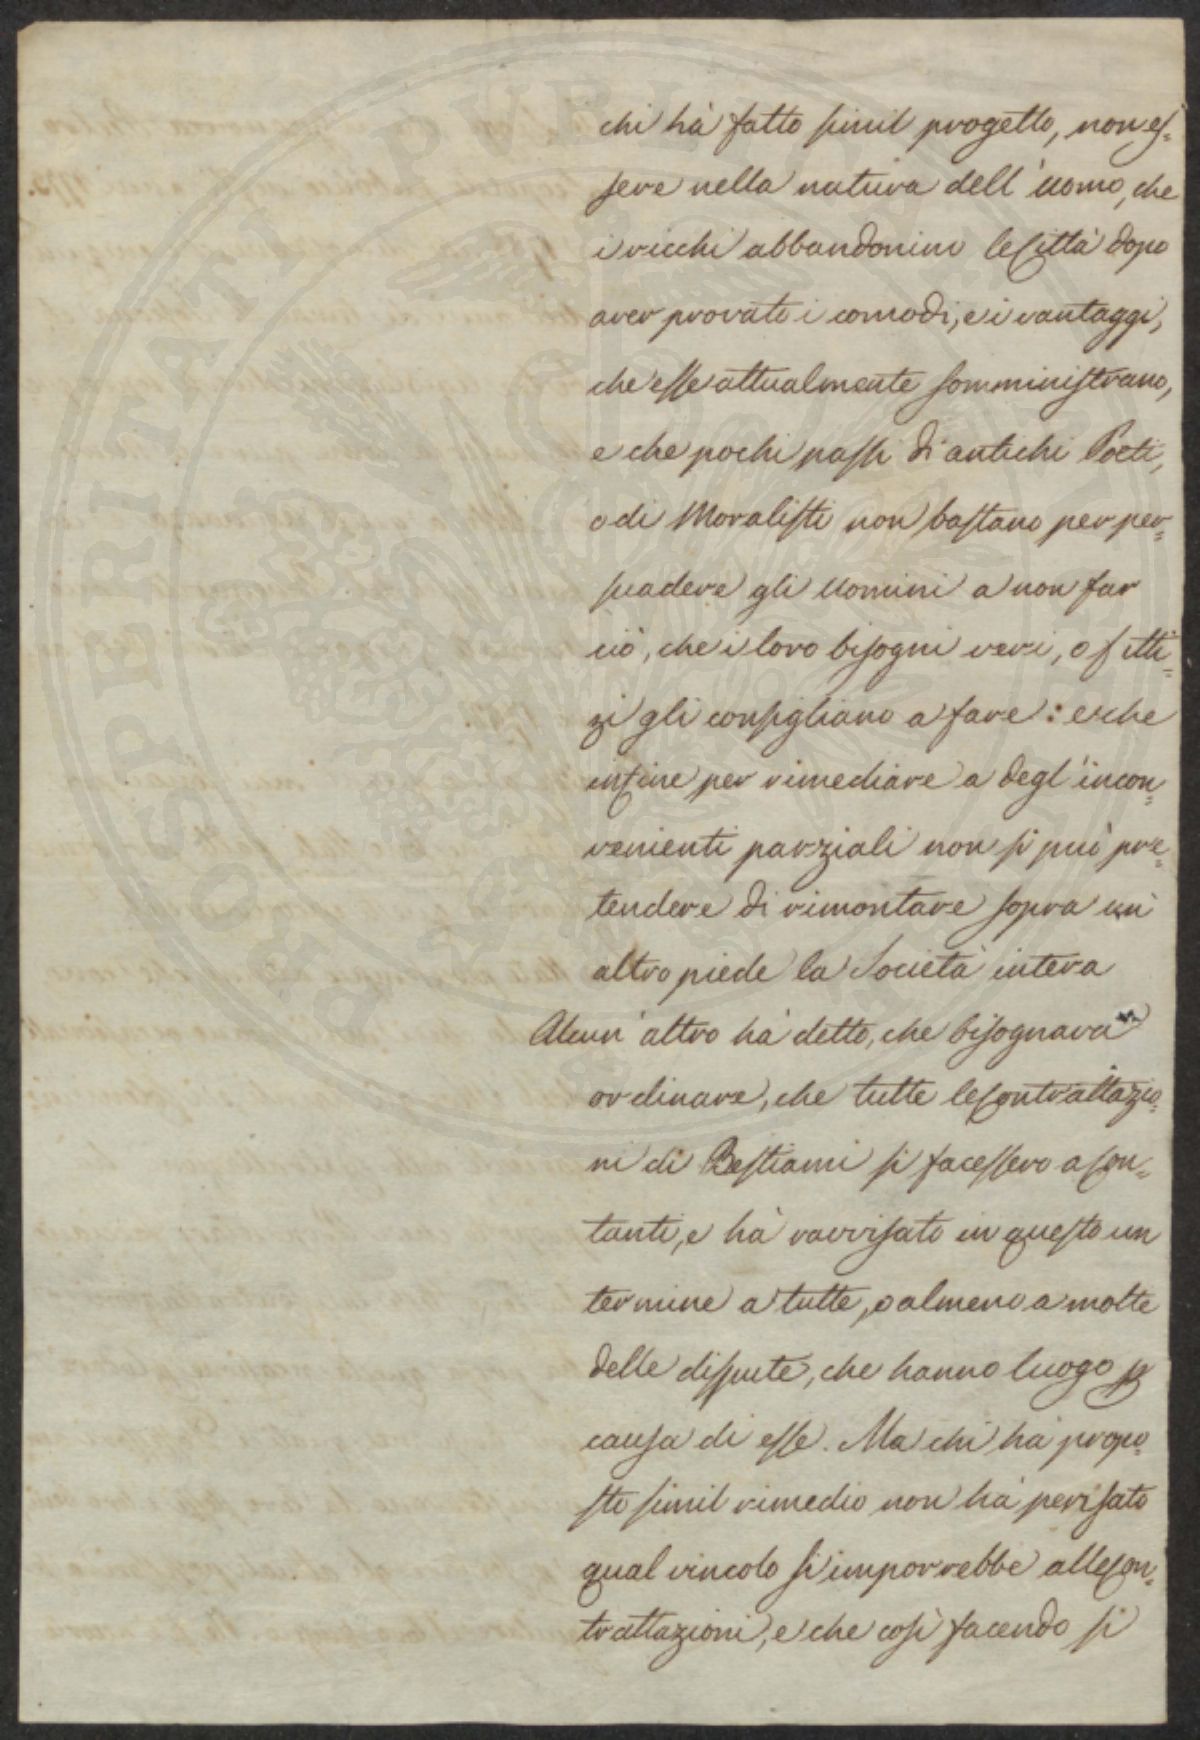 chi hà fatto simil progetto, non es=
sere nella natura dell' uomo, che
i ricchi abbandonino le Città dopo
aver provato i comodi, e i vantaggi,
che esse attualmente somministrano,
e che pochi passi di antichi Poeti,
o di Moralisti non bastano per per=
suadere gli Uomini a non far
ciò, che i loro bisogni veri, o fitti=
zi gli consigliano a fare: e che
infine per rimediare a degl' incon=
venienti parziali non si può pre=
tendere di rimontare sopra un'
altro piede la Società intera
Alcun' altro hà detto, che bisognava
ordinare, che tutte le Contrattazio=
ni di Bestiami si facessero a Con=
tanti, e hà ravvisato in questo un
termine a tutte, o almeno a molte
delle dispute, che hanno luogo p
causa di esse. Ma chi hà propo=
sto simil rimedio non hà pensato
qual vincolo si imporrebbe alle Con=
trattazioni, e che così facendo si
PROSPERITATI PUBLICAE